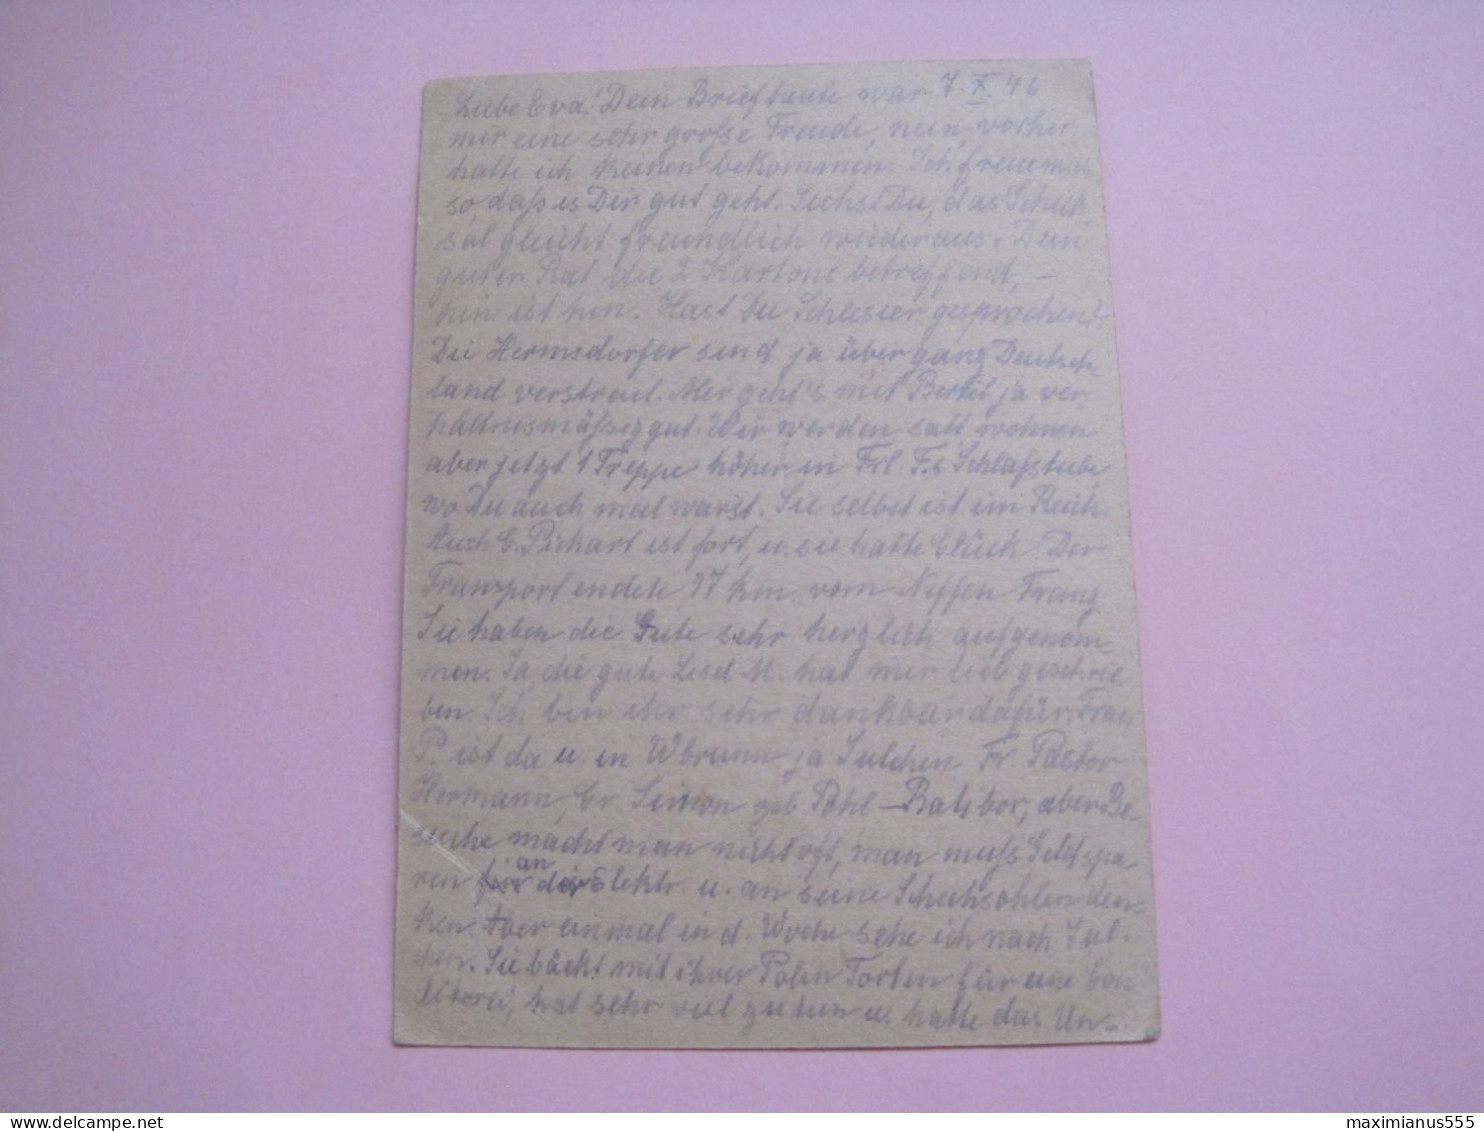 Liebe Eva! Dein Brief heute war 7. X. 46
mir eine sehr große Freude, nein, vorher
hatte ich keinen bekommen. Ich freue mich
so, daß es Dir gut geht. Siehst Du, das Schick-
sal gleicht freundlich wieder aus. Dein
guter Rat die 2 Kartons betreffend, –
hin ist hin. Hast Du Schlesier gesprochen?
Die Hermsdorfer sind ja über ganz Deutsch-
land verstreut. Mir geht's mit Bertel ja ver-
hältnismäßig gut. Wir werden satt, wohnen
aber jetzt 1 Treppe höher in Frl. F.s Schlafstube,
wo Du auch mal warst. Sie selbst ist im Reich.
Auch G. Pichart ist fort, u. sie hatte Glück. Der
Transport endete 17 km. vom Neffen Franz.
Sie haben die Gute sehr herzlich aufgenom-
men. Ja, die gute Lisel M. hat mir lieb geschrie-
ben. Ich bin ihr sehr dankbar dafür. Frau
P. ist da u. in Wbrunn ja Julchen, Fr. Pastor
Hormann, Gr. Simon geb. Pohl-Ratibor, aber Be-
suche macht man nicht oft, man muß Geld spa-
ren an der Elektr. u. an seine Schuhsohlen den-
ken. Aber einmal in d. Woche sehe ich nach Jul-
chen. Sie bäckt mit ihrer Polin Torten für eine Con-
ditorei, hat sehr viel zu tun u. hatte das Un-
maximianus555